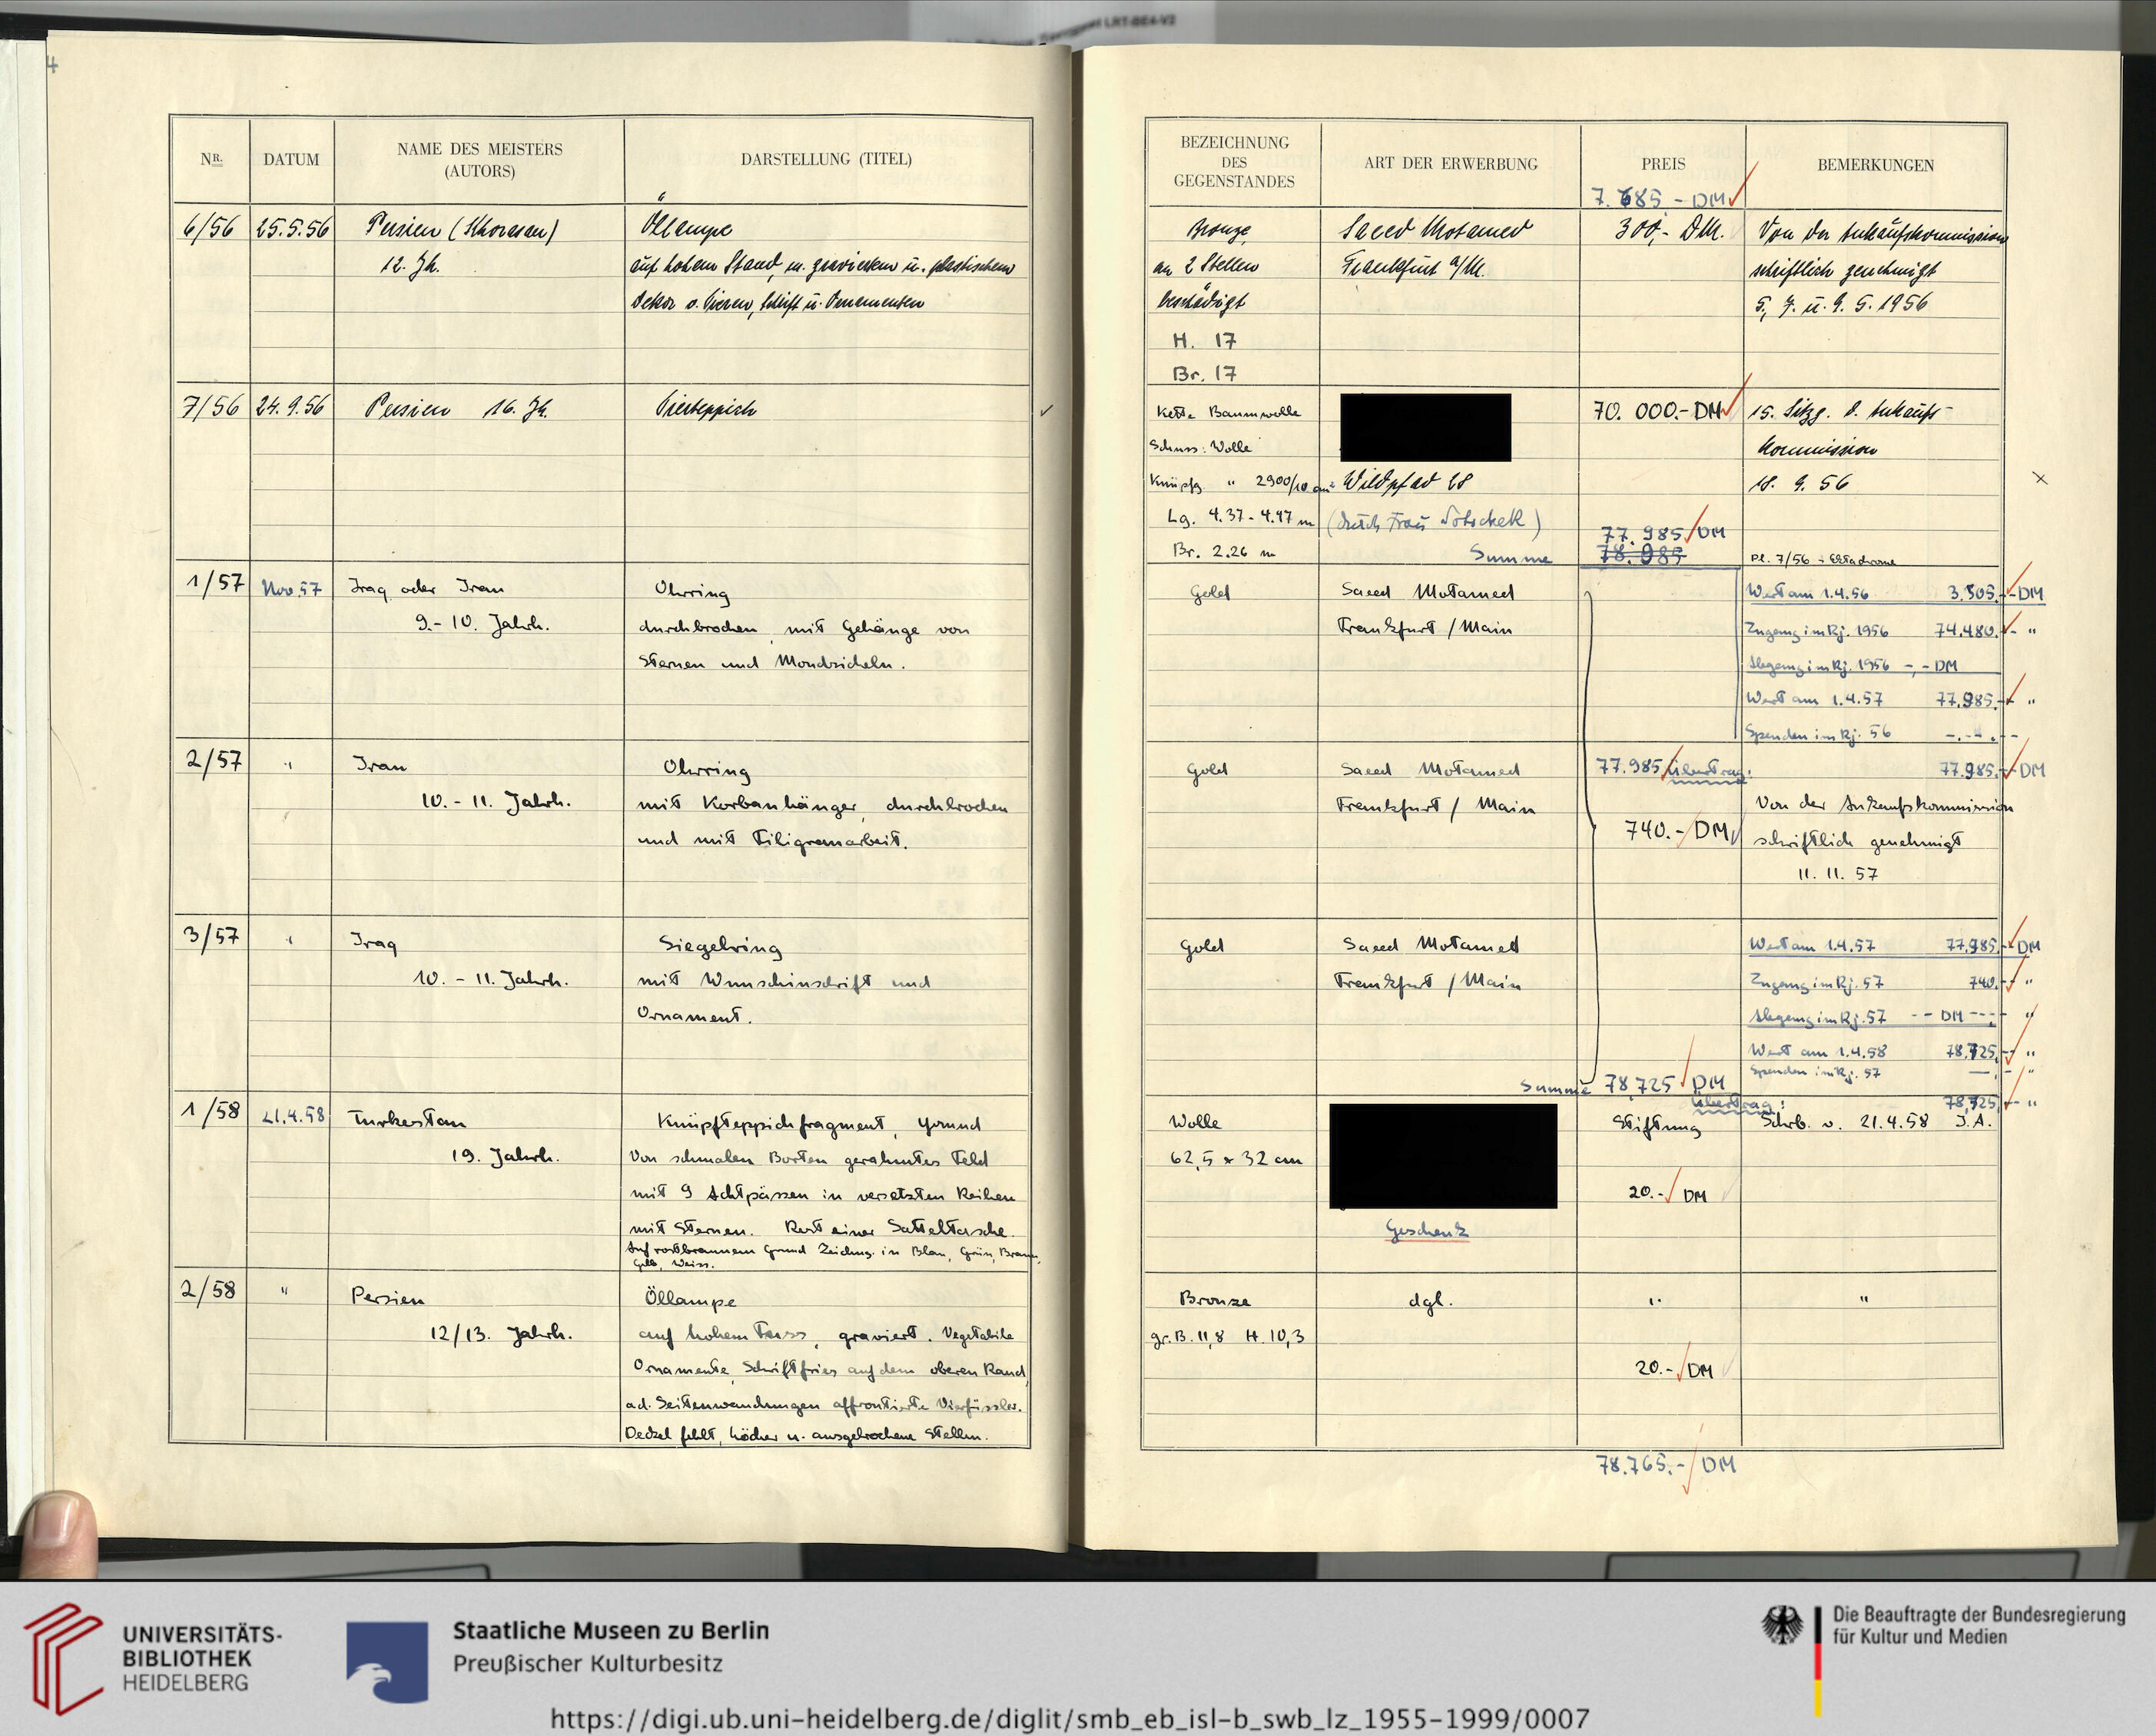 4
NR.
DATUM
NAME DES MEISTERS
(AUTORS)
DARSTELLUNG (TITEL)
6/56 25.5.56 Persien (Khorasan) Öllampe
12. Jh. auf hohem Stand, m. graviertem u. plastischem
Dekor v. Tieren, Schrift u. Ornamenten
7/56 24.9.56 Persien 16. Jh. Tierteppich
1/57 Nov. 57 Iraq oder Iran Ohrring
9.-10. Jahrh. durchbrochen, mit Gehänge von
Sternen und Mondsicheln.
2/57 " Iran Ohrring
10. - 11. Jahrh. mit Korbanhänger, durchbrochen
und mit Filigranarbeit.
3/57 " Iraq Siegelring
10. - 11. Jahrh. mit Wunschinschrift und
Ornament.
1/58 21.4.58 Turkestan Knüpfteppichfragment, Grund
19. Jahrh. Von schmalen Borten gerahmtes Feld
mit 9 Achtpässen in versetzten Reihen
mit Sternen. Rest einer Satteltasche.
Auf rostbraunem Grund Zeichng. in Blau, Grün, Braun,
Gelb, Weiss.
2/58 " Persien Öllampe
12/13. Jahrh. auf hohem Fuss, graviert. Vegetabile
Ornamente, Schriftfries auf dem oberen Rand,
a.d. Seitenwandungen affrontierte Vierfüssler.
Deckel fehlt, Löcher u. ausgebrochene Stellen.
BEZEICHNUNG
DES
GEGENSTANDES
ART DER ERWERBUNG
PREIS
BEMERKUNGEN
7.685 - DM
Bronze, Saeed Motamed 300,- DM. Von der Ankaufskommission
an 2 Stellen Frankfurt a/M. schriftlich genehmigt
beschädigt 5., 7. u. 9. 5. 1956
H. 17
Br. 17
Kette Baumwolle 70.000.- DM 15. Sitzg. d. Ankaufs-
Schuss: Wolle Kommission
Knüpfg. " 2900/10 cm² Wildpfad 28 18. 9. 56
Lg. 4.37-4.47 m (durch Frau )
77.985 DM
Br. 2.26 m Summe 78.985 Pl. 7/56 = Ektachrome
Gold Saeed Motamed Wert am 1.4.56 3.505.- DM
Frankfurt / Main Zugang im Rj. 1956 74.480.- "
Abgang im Rj. 1956 -,- DM
Wert am 1.4.57 77.985.- "
Spenden im Rj. 56 -.-
Gold Saeed Motamed 77.985 Übertrag: 77.985.- DM
Frankfurt / Main Von der Ankaufskommission
740.- DM schriftlich genehmigt
11. 11. 57
Gold Saeed Motamed Wert am 1.4.57 77.985.- DM
Frankfurt / Main Zugang im Rj. 57 740.- "
Abgang im Rj. 57 -- DM --- "
Wert am 1.4.58 78.725,- "
Spenden im Rj. 57 — "
Summe 78,725 DM
Übertrag: 78,725,- "
Wolle Stiftung Schrb. v. 21.4.58 J.A.
62,5 x 32 cm
20.- DM
Geschenk
Bronze dgl. " "
gr. B. 11,8 H. 10,3
20.- DM
78.765.- DM
UNIVERSITÄTS-
BIBLIOTHEK
HEIDELBERG
Staatliche Museen zu Berlin
Preußischer Kulturbesitz
Die Beauftragte der Bundesregierung
für Kultur und Medien
https://digi.ub.uni-heidelberg.de/diglit/smb_eb_isl-b_swb_lz_1955-1999/0007